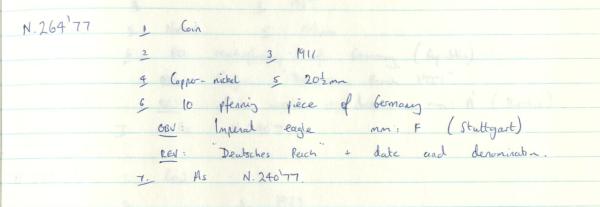 N.264'77 1 Coin
2 3 1911
4 Copper-nickel 5 20½mm
6 10 pfennig piece of Germany
OBV: Imperial eagle mm: F (Stuttgart)
REV: "Deutsches Reich" + date and denomination.
7. As N.240'77.